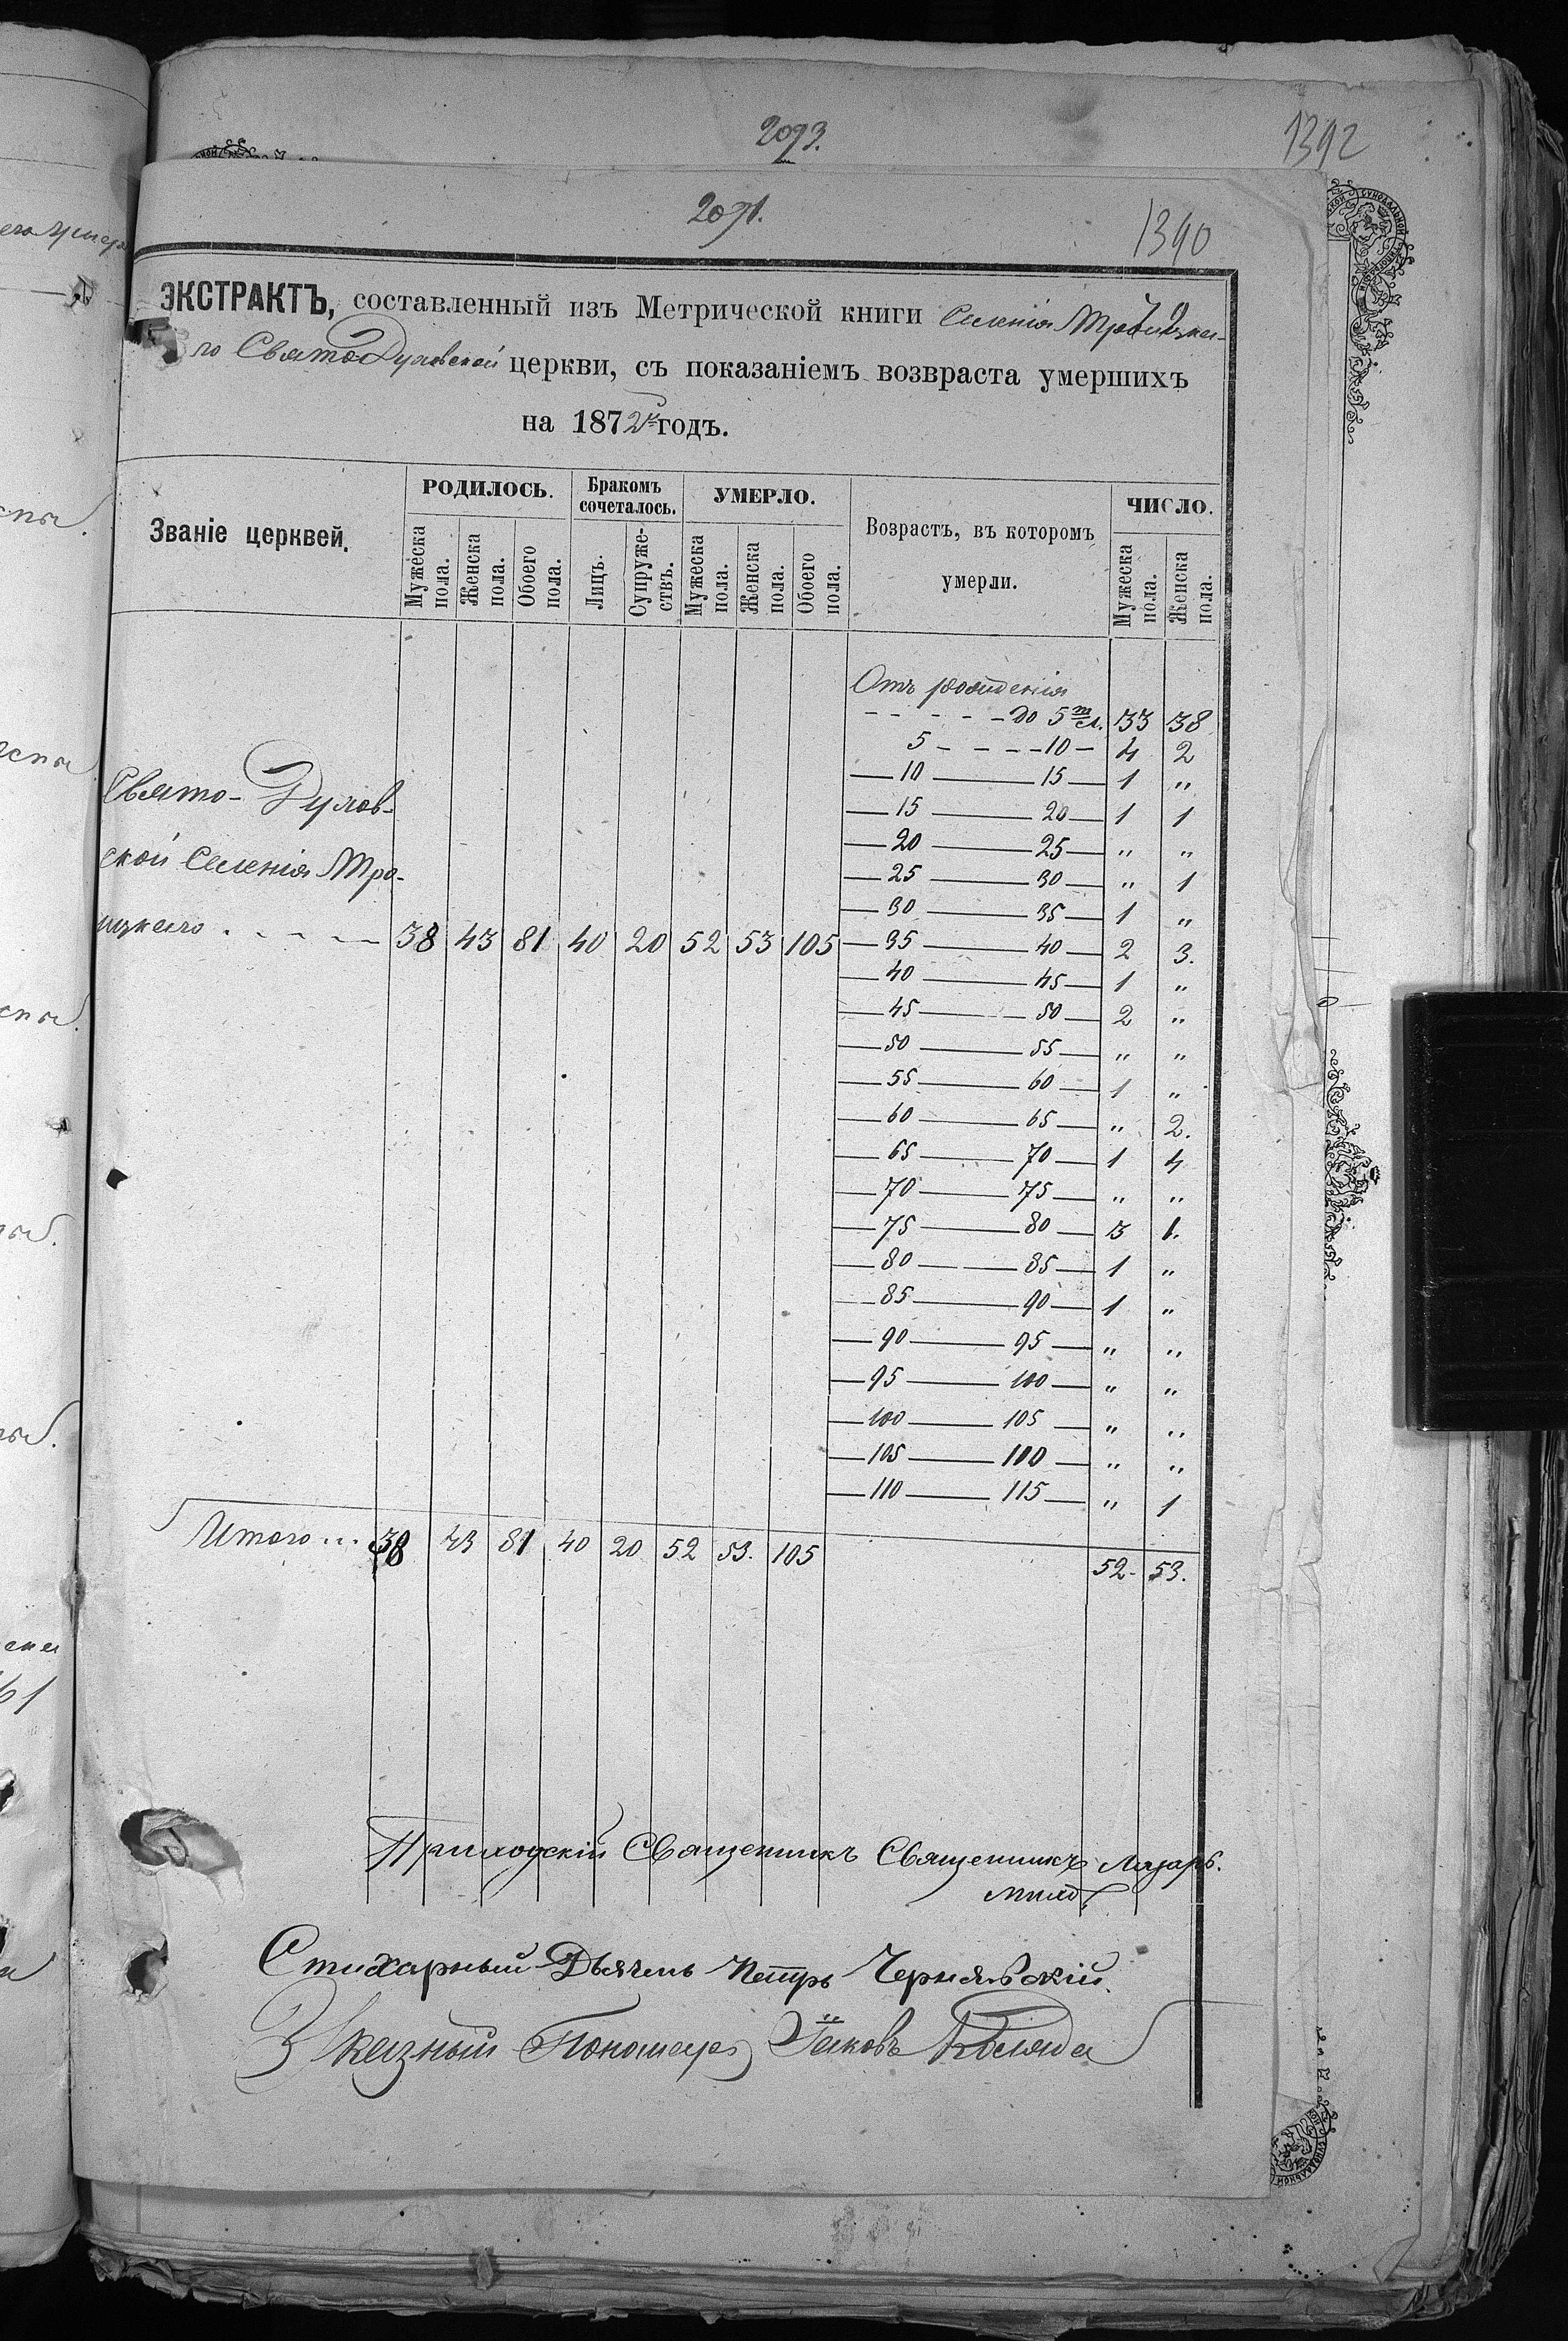 2093.
1392
2091.
1390
ЭКСТРАКТЪ, составленный изъ Метрической книги Селенія Троицка-
го Свято-Духовской церкви, съ показаніемъ возвраста умершихъ
на 1872й годъ.
Званіе церквей.
РОДИЛОСЬ.
Мужеска пола.
Женска пола.
Обоего пола.
Бракомъ сочеталось.
Лицъ.
Супружествъ.
УМЕРЛО.
Мужеска пола.
Женска пола.
Обоего пола.
Возрастъ, въ которомъ
умерли.
ЧИСЛО.
Мужеска пола.
Женска пола.
Отъ рожденія
до 5 тл. 33 38
5 - - - - 10 - 4 2
10 — 15 — 1 „
15 — 20 — 1 1
20 — 25 — „ „
25 — 30 — „ 1
30 — 35 — 1 „
Свято-Духов-
ской Селенія Тро-
ицкаго . - - - 38 43 81 40 20 52 53 105
35 — 40 — 2 3.
40 — 45 — 1 „
45 — 50 — 2 „
50 — 55 — „ „
55 — 60 — 1 „
60 — 65 — „ 2.
65 — 70 — 1 4
70 — 75 — „ „
75 — 80 — 3 1.
80 — 85 — 1 „
85 — 90 — 1 „
90 — 95 — „ „
95 — 100 — „ „
100 — 105 — „ „
105 — 110 — „ „
110 — 115 — „ 1
Итого... 38 43 81 40 20 52 53. 105 52- 53.
Приходскій Священникъ Священникъ Лазарь
Стихарный Дьячекъ Петръ Чернявскій.
Указный Пономарь Яковъ Коляда